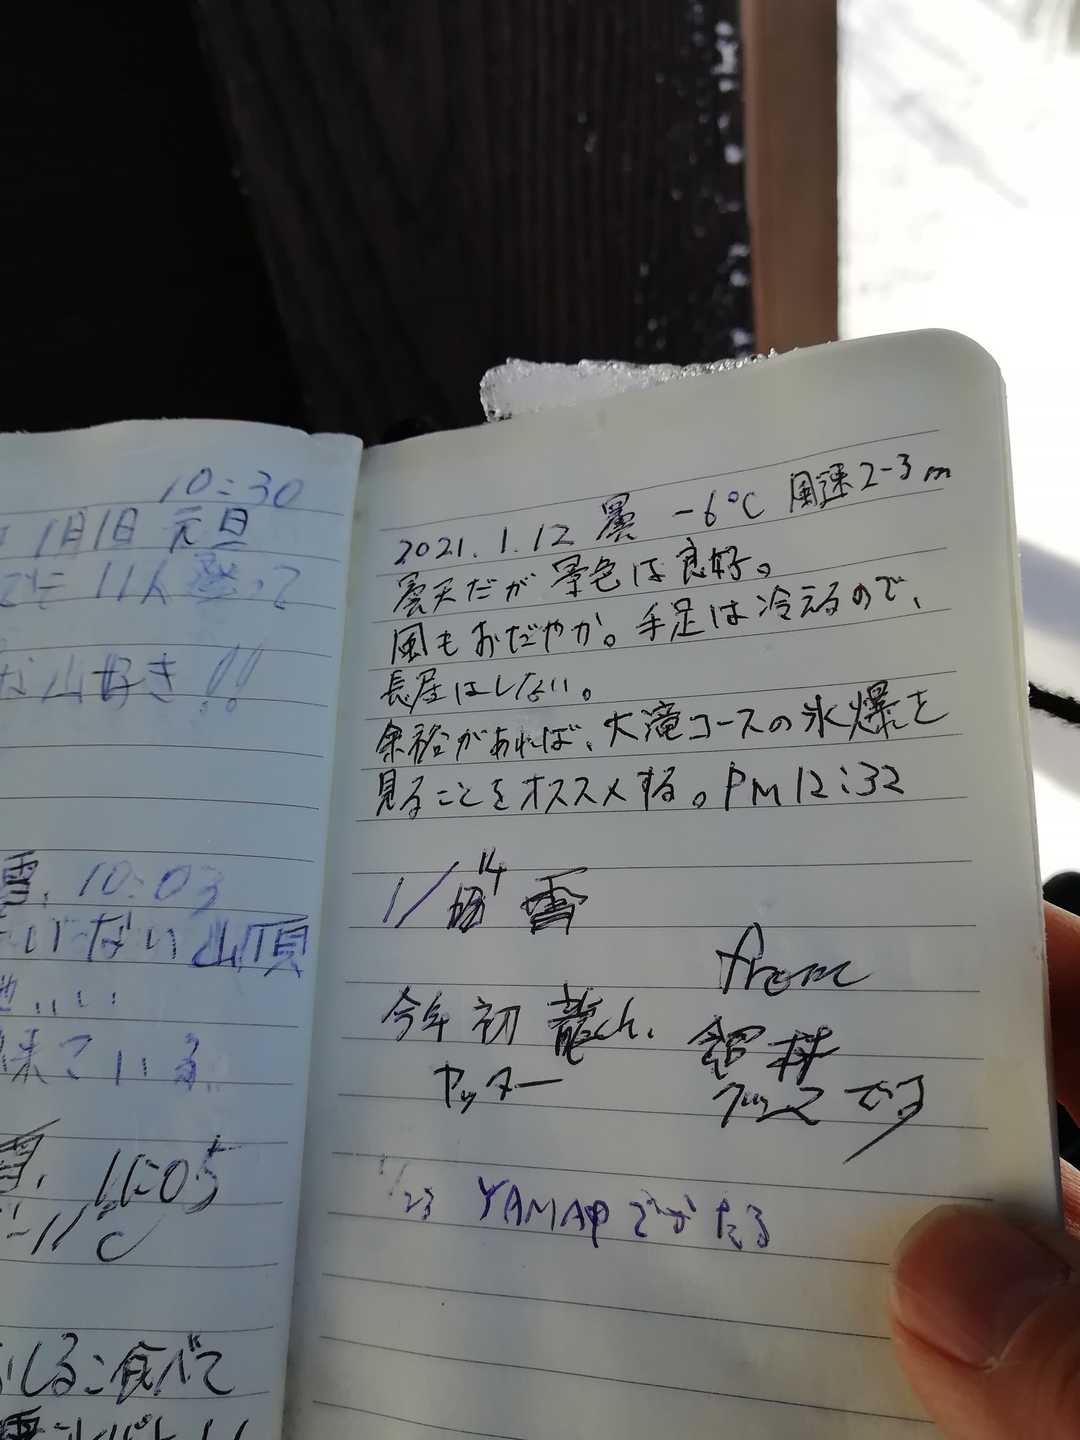 10:30
1月1日 元旦
11人 登って
山好き!!
雪. 10:03
いない山頂
いい
来ている.
11:05
-11℃
しるこ食べて
2021.1.12 曇 -6℃ 風速2-3m
曇天だが景色は良好。
風もおだやか。手足は冷えるので、
長居はしない。
余裕があれば、大滝コースの氷爆を
見ることをオススメする。PM12:32
1/14 雪
from
今年初 龍ch.
ヤッター
です
1/23 YAMAP でかたる